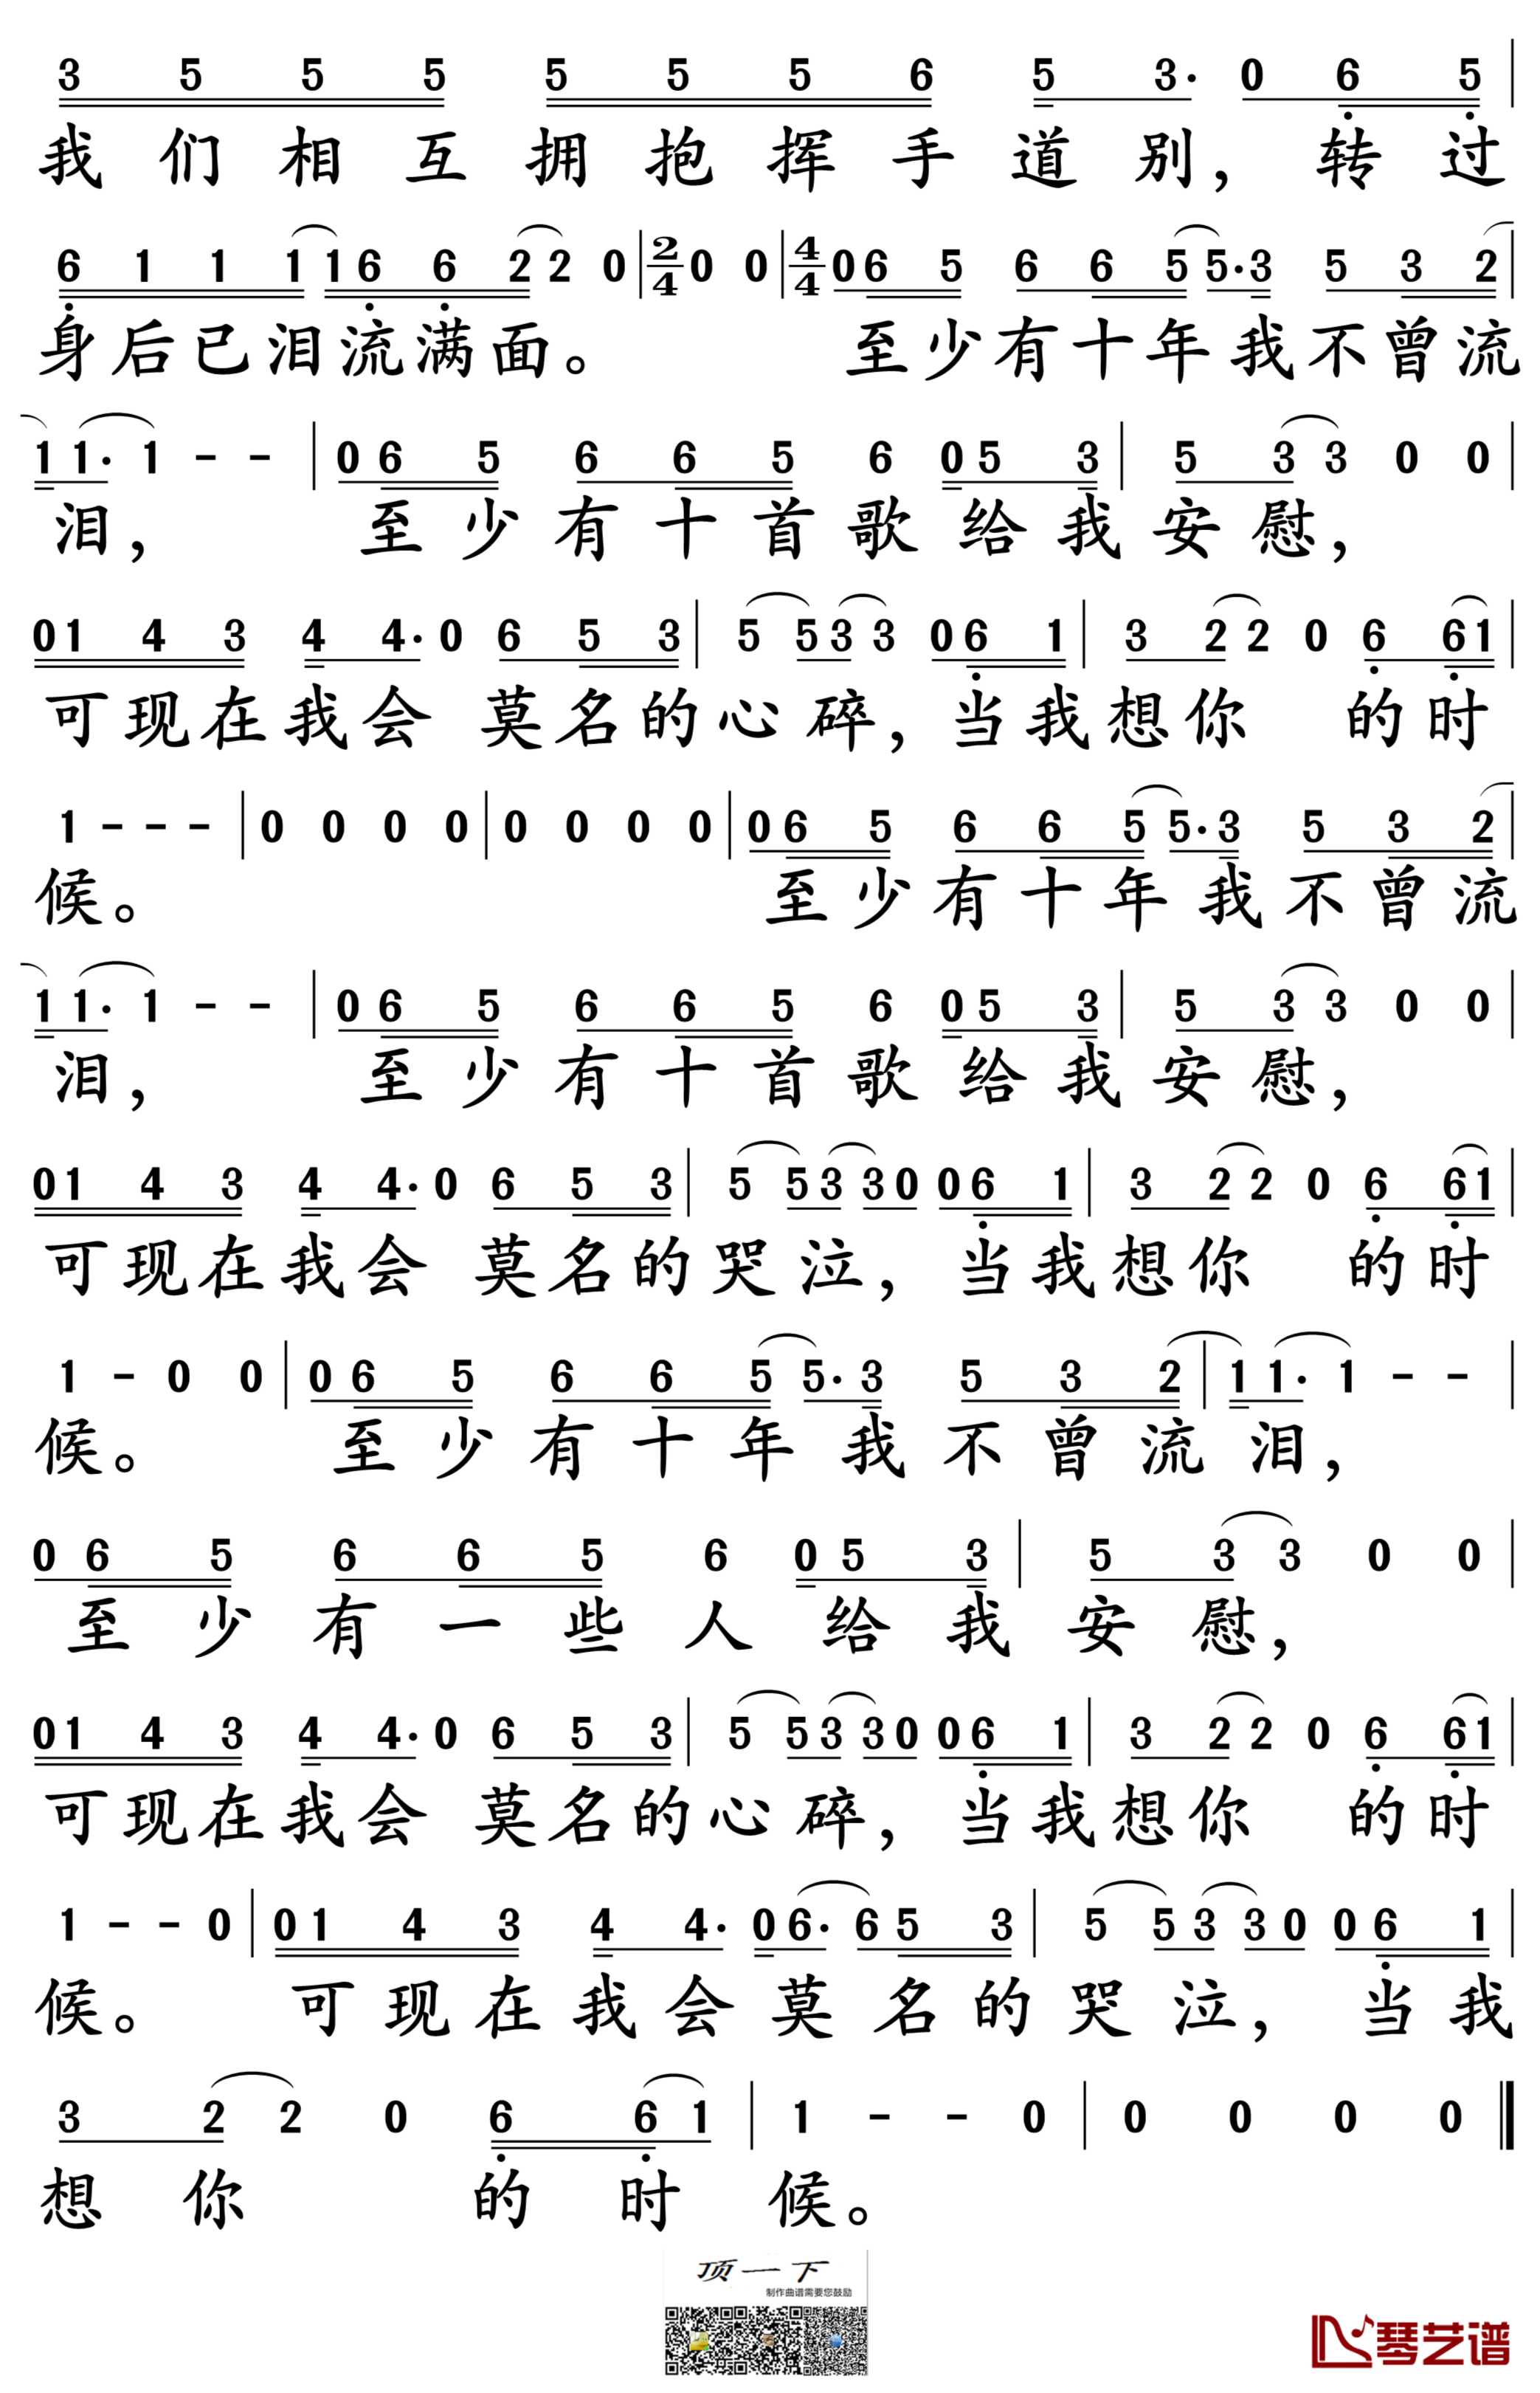 3 5 5 5 5 5 5 6 5 3· 0 6 5 |
我们相互拥抱挥手道别，转过
6 1 1 1 1 6 6 2 2 0 | 2/4 0 0 | 4/4 0 6 5 6 6 5 5· 3 5 3 2 |
身后已泪流满面。 至少有十年我不曾流
1 1· 1 - - | 0 6 5 6 6 5 6 0 5 3 | 5 3 3 0 0 |
泪， 至少有十首歌给我安慰，
0 1 4 3 4 4· 0 6 5 3 | 5 5 3 3 0 6 1 | 3 2 2 0 6 6 1 |
可现在我会 莫名的心碎，当我想你 的时
1 - - - | 0 0 0 0 | 0 0 0 0 | 0 6 5 6 6 5 5· 3 5 3 2 |
候。 至少有十年我不曾流
1 1· 1 - - | 0 6 5 6 6 5 6 0 5 3 | 5 3 3 0 0 |
泪， 至少有十首歌给我安慰，
0 1 4 3 4 4· 0 6 5 3 | 5 5 3 3 0 0 6 1 | 3 2 2 0 6 6 1 |
可现在我会 莫名的哭泣，当我想你 的时
1 - 0 0 | 0 6 5 6 6 5 5· 3 5 3 2 | 1 1· 1 - - |
候。 至少有十年我不曾流泪，
0 6 5 6 6 5 6 0 5 3 | 5 3 3 0 0 |
至少有一些人给我安慰，
0 1 4 3 4 4· 0 6 5 3 | 5 5 3 3 0 0 6 1 | 3 2 2 0 6 6 1 |
可现在我会 莫名的心碎，当我想你 的时
1 - - 0 | 0 1 4 3 4 4· 0 6· 6 5 3 | 5 5 3 3 0 0 6 1 |
候。 可现在我会莫名的哭泣，当我
3 2 2 0 6 6 1 | 1 - - 0 | 0 0 0 0 ‖
想你 的时候。
顶一下
制作曲谱需要您鼓励
琴艺谱